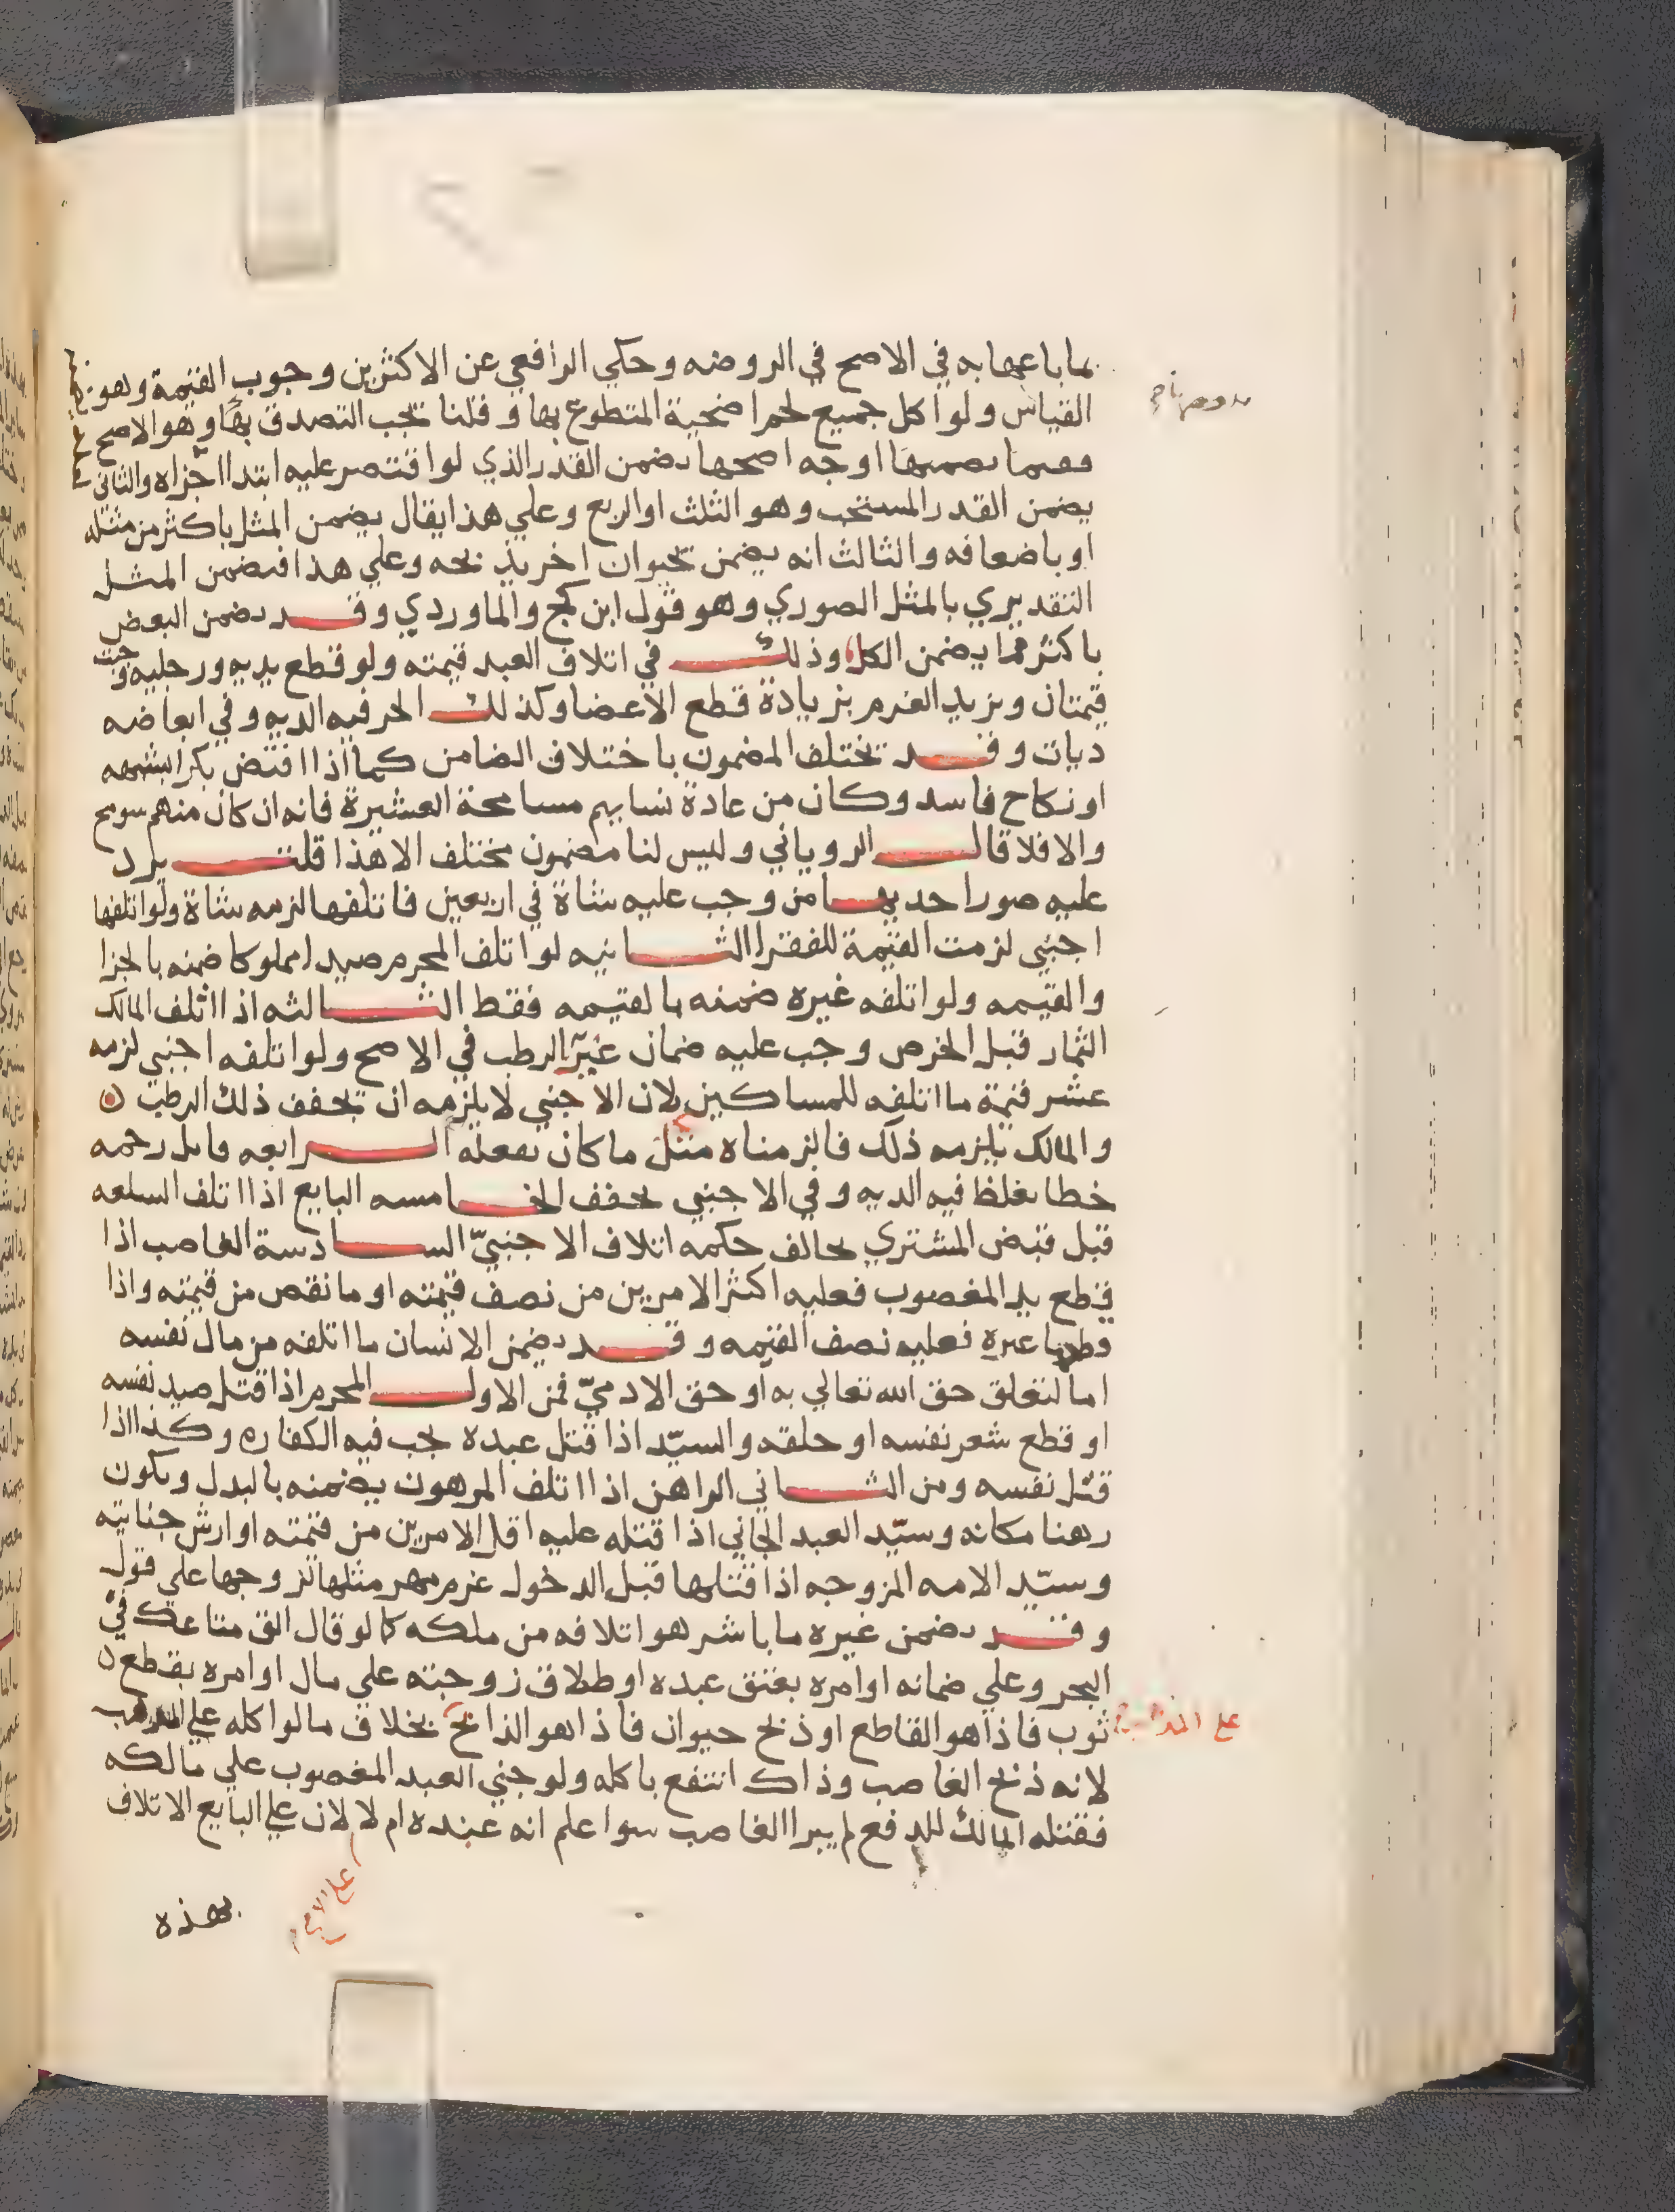 بما باعها به في الاصح في الروضه وحكي الرافعي عن الاكثرين وجوب القيمة وهو
القياس ولو اكل جميع لحم اضحية المتطوع بها وقلنا يجب التصدق بها وهو الاصح
ففيما يضمنها اوجه اصحها يضمن القدر الذي لو اقتصر عليه ابتدا اجزاه والثاني
يضمن القدر المستحب وهو الثلث او الربع وعلي هذا يقال يضمن المثل باكثر من مثله
او باضعافه والثالث انه يضمن بحيوان اخر يذبحه وعلي هذا فيضمن المثل
التقديري بالمثل الصوري وهو قول ابن كج والماوردي وقد يضمن البعض
باكثر مما يضمن الكل وذلك في اتلاف العبد قيمته ولو قطع يديه ورجليه وجبت
قيمتان ويزيد الغرم بزيادة قطع الاعضا وكذلك الحر فيه الديه وفي ابعاضه
ديات وقد يختلف المضمون باختلاف الضامن كما اذا افتض بكرا بشبهه
او نكاح فاسد وكان من عادة نسايهم مسامحة العشيرة فانه ان كان منهم سومح
والا فلا قال الروياني وليس لنا مضمون يختلف الا هذا قلت يرد
عليه صور احديها من وجب عليه شاة في اربعين فاتلفها لزمه شاة ولو اتلفها
اجنبي لزمت القيمة للفقرا الثانيه لو اتلف المحرم صيدا مملوكا ضمنه بالجزا
والقيمه ولو اتلفه غيره ضمنه بالقيمه فقط الثالثه اذا اتلف المالك
الثمار قبل الخرص وجب عليه ضمان عشر الرطب في الاصح ولو اتلفه اجنبي لزمه
عشر قيمة ما اتلفه للمساكين لان الاجنبي لا يلزمه ان يجفف ذلك الرطب
والمالك يلزمه ذلك فالزمناه مثل ما كان يفعله الرابعه قاتل رحمه
خطا يغلظ فيه الديه وفي الاجنبي يخفف الخامسه البايع اذا اتلف السلعه
قبل قبض المشتري يخالف حكمه اتلاف الاجنبيّ السادسة الغاصب اذا
قطع يد المغصوب فعليه اكثر الامرين من نصف قيمته او ما نقص من قيمته واذا
قطعها غيره فعليه نصف القيمه وقد يضمن الانسان ما اتلفه من مال نفسه
اما لتعلق حق الله تعالي به او حق الادميّ فمن الاول المحرم اذا قتل صيد نفسه
او قطع شعر نفسه او حلقه والسيّد اذا قتل عبده يجب فيه الكفاره وكذا اذا
قتل نفسه ومن الثاني الراهن اذا اتلف المرهون يضمنه بالبدل ويكون
رهنا مكانه وسيّد العبد الجاني اذا قتله عليه اقل الامرين من قيمته او ارش جنايته
وسيّد الامه المزوجه اذا قتلها قبل الدخول غرم مهر مثلها لزوجها علي قول
وقد يضمن غيره ما باشر هو اتلافه من ملكه كما لو قال الق متاعك في
البحر وعلي ضمانه او امره بعتق عبده او طلاق زوجته علي مال او امره بقطع
ثوب فاذا هو القاطع او ذبح حيوان فاذا هو الذابح بخلاف ما لو اكله علي المذهب
لانه ذبح الغاصب وذاك انتفع باكله ولو جني العبد المغصوب علي مالكه
فقتله المالك للدفع لم يبرا الغاصب سوا علم انه عبده ام لا لان علي البايع الاتلاف
علي المذهب
علي الاصح
بهذه